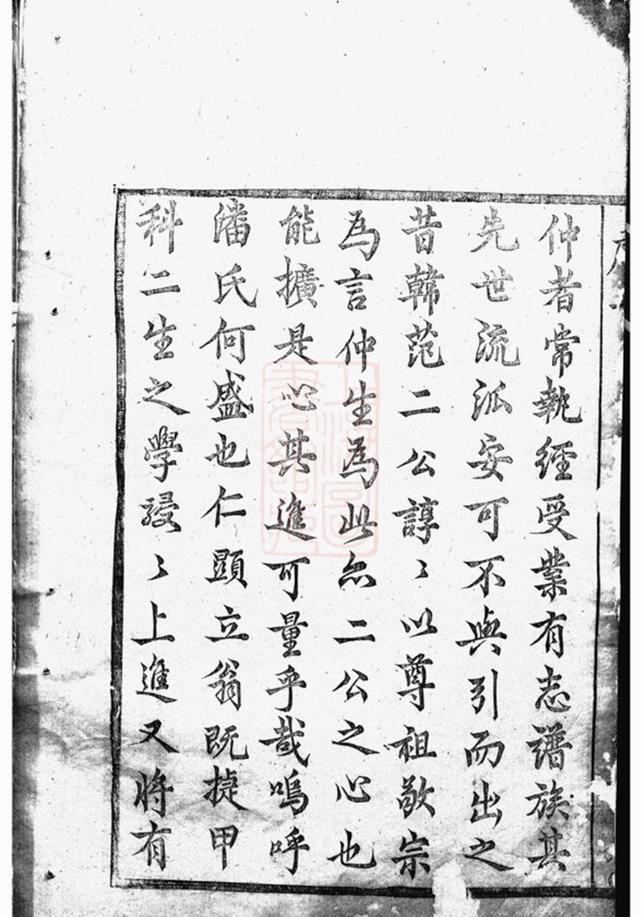 仲者常執經受業有志譜族其
先世流派安可不與引而出之
昔韓范二公諄〻以尊祖敬宗
為言仲生為此亦二公之心也
能擴是心其進可量乎哉嗚呼
潘氏何盛也仁顕立翁既捷甲
科二生之學駸〻上進又將有